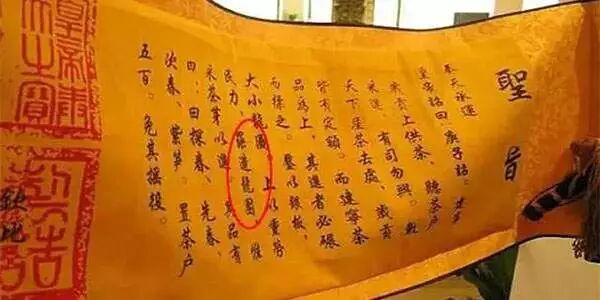 聖旨
奉天承運
皇帝詔曰：庚子詔。建寧
歲貢上供茶、聽茶戶
采進、有司勿與。敕
天下產茶去處、歲貢
皆有定額。而建寧茶
品為上、其進者必碾
而揉之。壓以銀板、
大小龍團。上以重勞
民力、罷造龍團、惟
采茶芽以進、其品有
四：曰探春、先春、
次春、紫筍。置茶戶
五百。免其徭役。
欽此